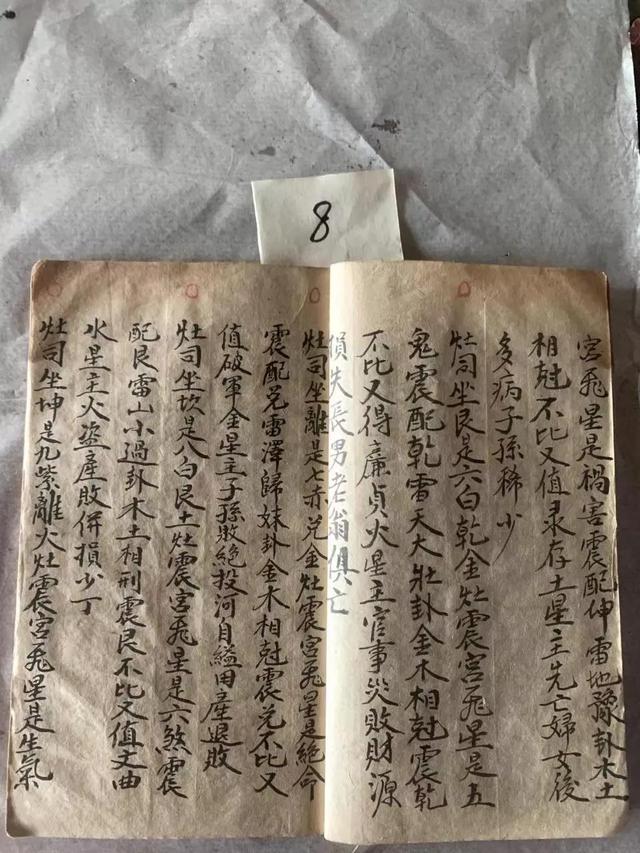 8
宮飛星是禍害震配坤雷地豫卦木土
相尅不比又值录存土星主先亡婦女後
多病子孫稀少
灶司坐艮是六白乾金灶震宮飛星是五
鬼震配乾雷天大壯卦金木相尅震乾
不比又得廉貞火星主官事災敗財源
損失長男老翁俱亡
灶司坐離是七赤兌金灶震宮飛星是絕命
震配兌雷澤歸妹卦金木相尅震兌不比又
值破軍金星主子孫敗絕投河自縊田產退敗
灶司坐坎是八白艮土灶震宮飛星是六煞震
配艮雷山小過卦木土相刑震艮不比又值文曲
水星主火盜產敗併損少丁
灶司坐坤是九紫離火灶震宮飛星是生氣